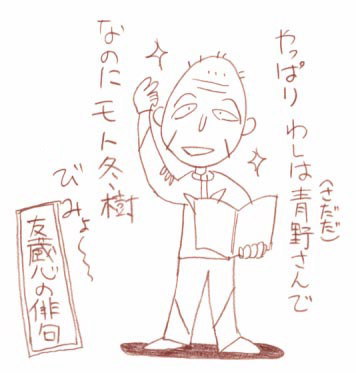 やっぱり わしは青野さんで
(さだだ)
なのに モト冬樹
びみょ〜〜
友蔵心の俳句